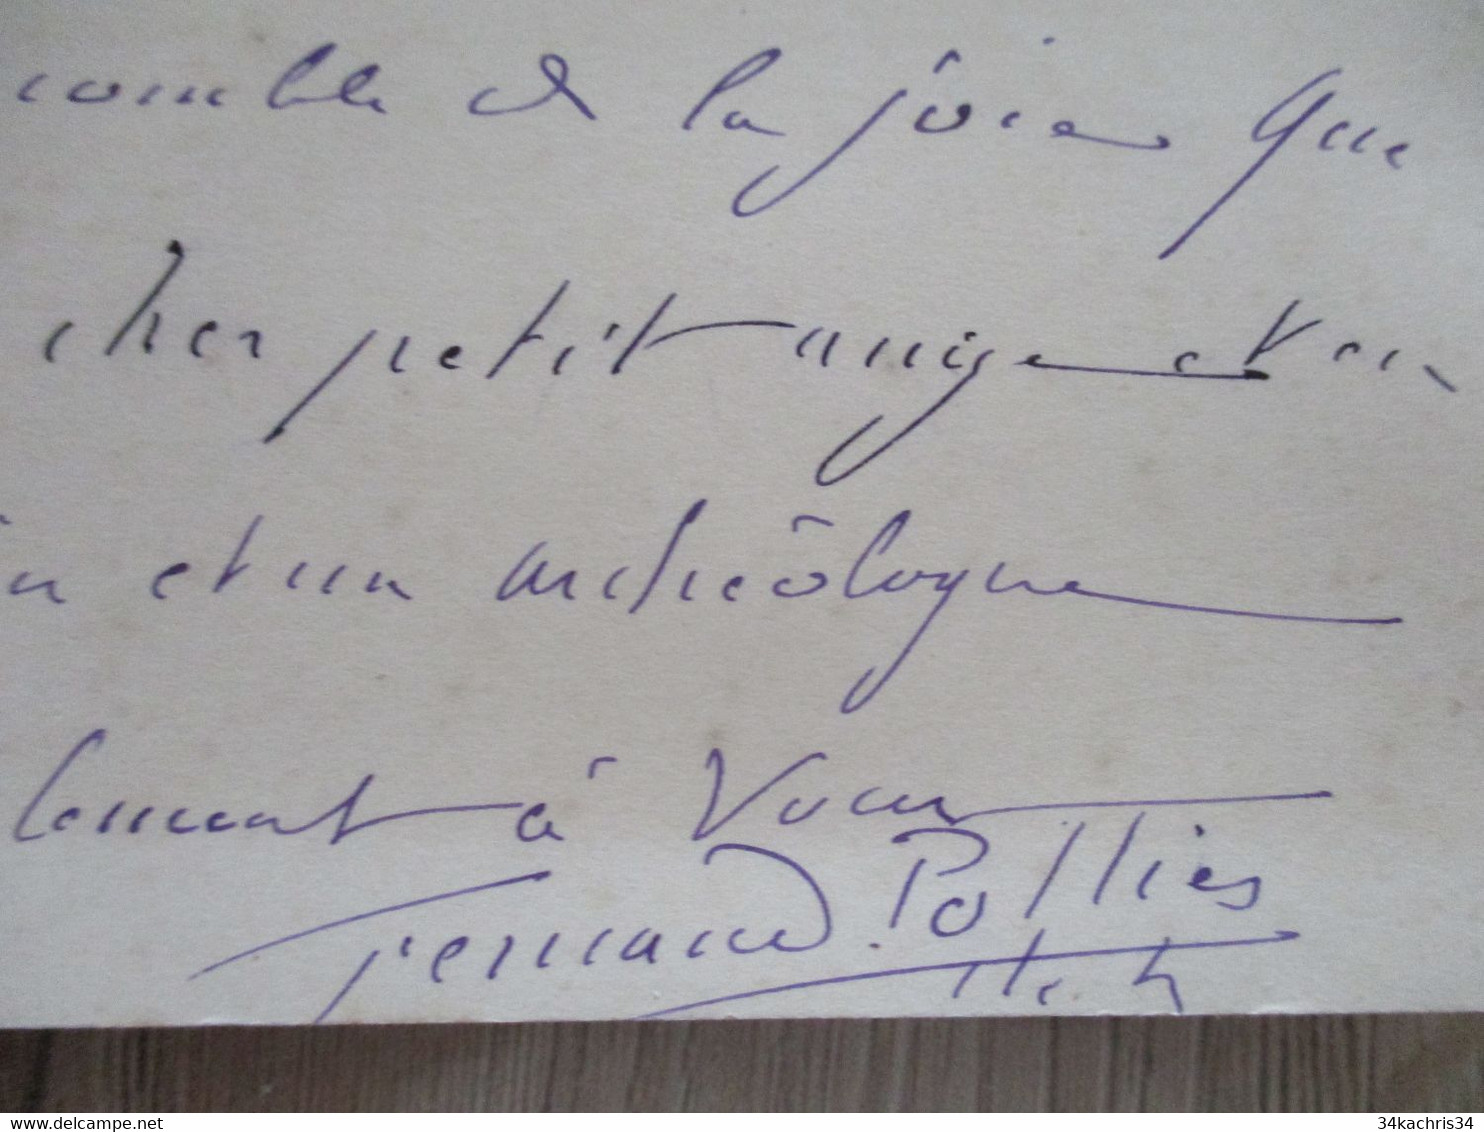 comble de la joie que
cher petit ange et un
et un archéologue
à Vous
Fernand Pollies
www.delcampe.net
34kachris34